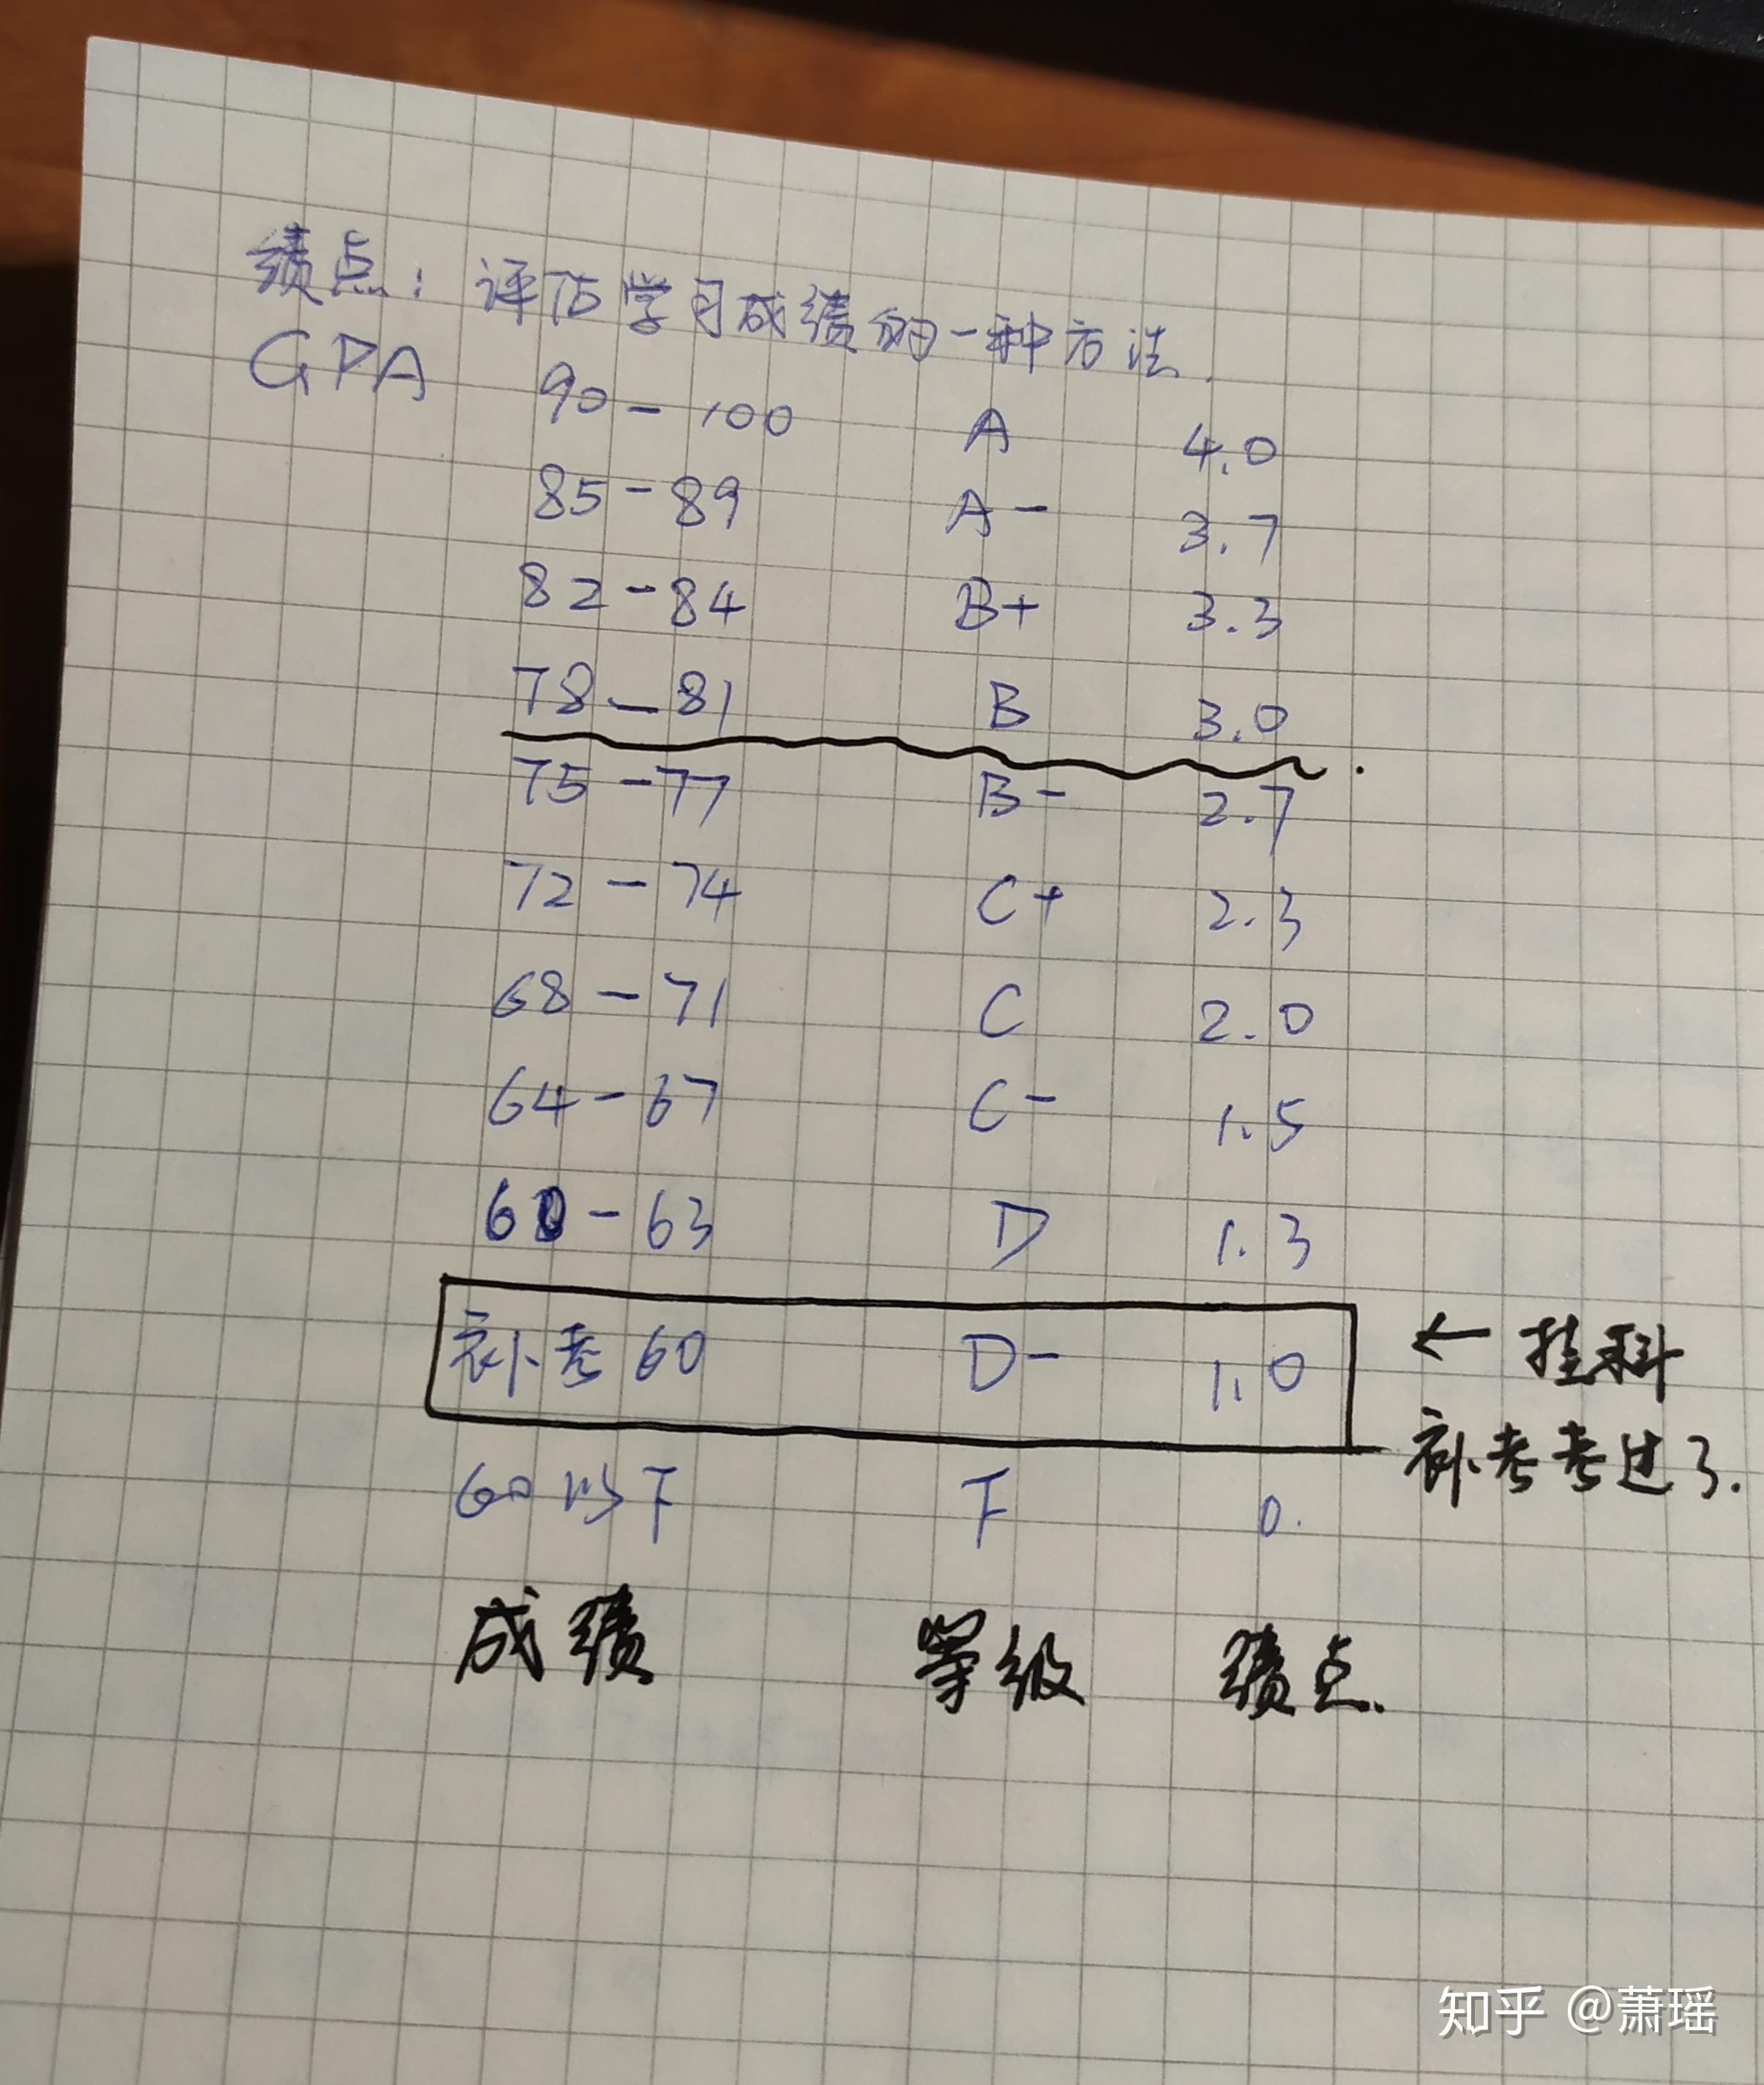 绩点：评估学习成绩的一种方法.
GPA 90-100 A 4.0
85-89 A- 3.7
82-84 B+ 3.3
78-81 B 3.0
75-77 B- 2.7
72-74 C+ 2.3
68-71 C 2.0
64-67 C- 1.5
60-63 D 1.3
补考60 D- 1.0 ← 挂科
补考考过了.
60以下 F 0.
成绩 等级 绩点.
知乎 @萧瑶